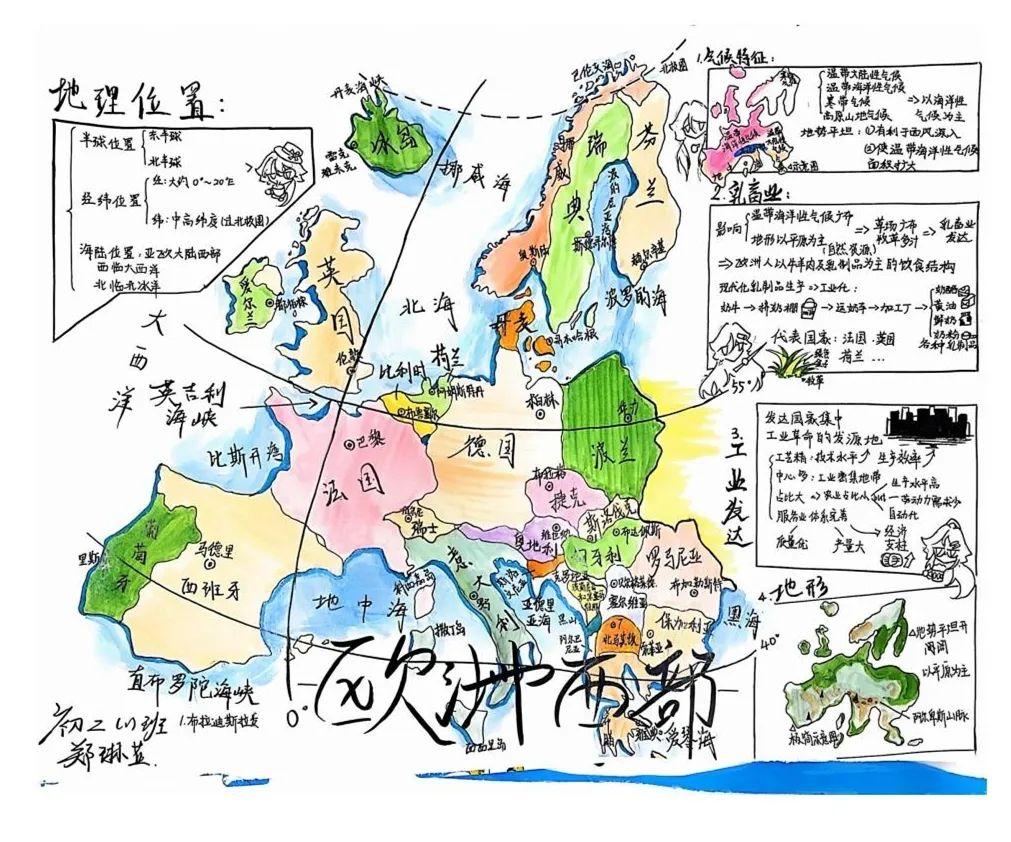 地理位置：
半球位置
东半球
北半球
经纬位置
经：大约 0°~20°E
纬：中高纬度（北极圈）
海陆位置：亚欧大陆西部
西临大西洋
北临北冰洋
丹麦海峡
冰岛
雷克
雅未克
挪威海
巴伦支海
北极圈
挪威
瑞典
芬兰
波的尼亚湾
奥斯陆
斯德哥尔摩
赫尔辛基
波罗的海
英国
爱尔兰
都柏林
伦敦
北海
丹麦
哥本哈根
大西洋
英吉利
海峡
比利时
荷兰
阿姆斯特丹
布鲁塞尔
柏林
德国
波兰
55°
巴黎
法国
比斯开湾
布拉格
捷克
斯洛伐克
瑞士
维也纳
奥地利
布达佩斯
匈牙利
罗马尼亚
布加勒斯特
葡萄牙
里斯
马德里
西班牙
地中海
意大利
罗
科西嘉岛
撒丁岛
亚得里
亚海
黑山
阿尔巴
尼亚
贝尔格莱德
塞尔维亚
保加利亚
北马其顿
黑海
40°
直布罗陀海峡
1.布拉迪斯拉发
0°
西西里岛
爱琴海
欧洲西部
初二(1)班
1.气候特征：
温带大陆性气候
温带海洋性气候
寒带气候
高原山地气候
=>以海洋性
气候为主
地势平坦：①有利于西风深入
②使温带海洋性气候
面积扩大
温带
海洋性气候
示意图
2.乳畜业：
影响
温带海洋性气候
地形以平原为主
=>草场广布
牧草多汁
(自然资源)
=>乳畜业
发达
=>欧洲人以牛羊肉及乳制品为主的饮食结构
现代化乳制品生产=>工业化：
奶牛→挤奶棚→运奶车→加工厂→
奶酪
黄油
鲜奶
奶粉
各种乳制品
代表国家：法国 英国
荷兰 …
牧草
3.工业发达
发达国家集中
工业革命的发源地
工艺精：技术水平↑ 生产效率↑
中心多：工业密集地带
生产水平高
占比大
劳动力需求少
自动化
服务业体系完善
质量优 产量大
经济
支柱
4.地形
地势平坦开
阔
以平原为主
阿尔卑斯山脉